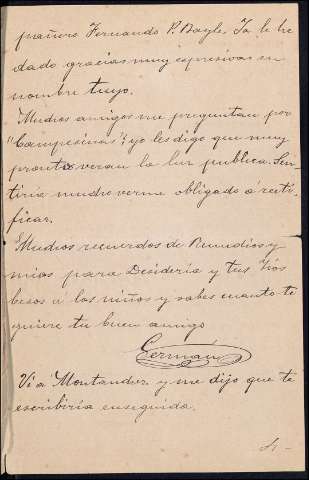 pañero Fernando P. Bayle. Ya le he
dado gracias muy expresivas en
nombre tuyo.
Muchos amigos me preguntan por
"Campesinas" y yo les digo que muy
pronto verán la luz pública. Sen-
tiría mucho verme obligado á recti-
ficar.
Muchos recuerdos de Remedios y
mios para Desideria y tus tíos
besos á los niños y sabes cuanto te
quiere tu buen amigo
Germán
Vi a Montander y me dijo que te
escribiría enseguida.